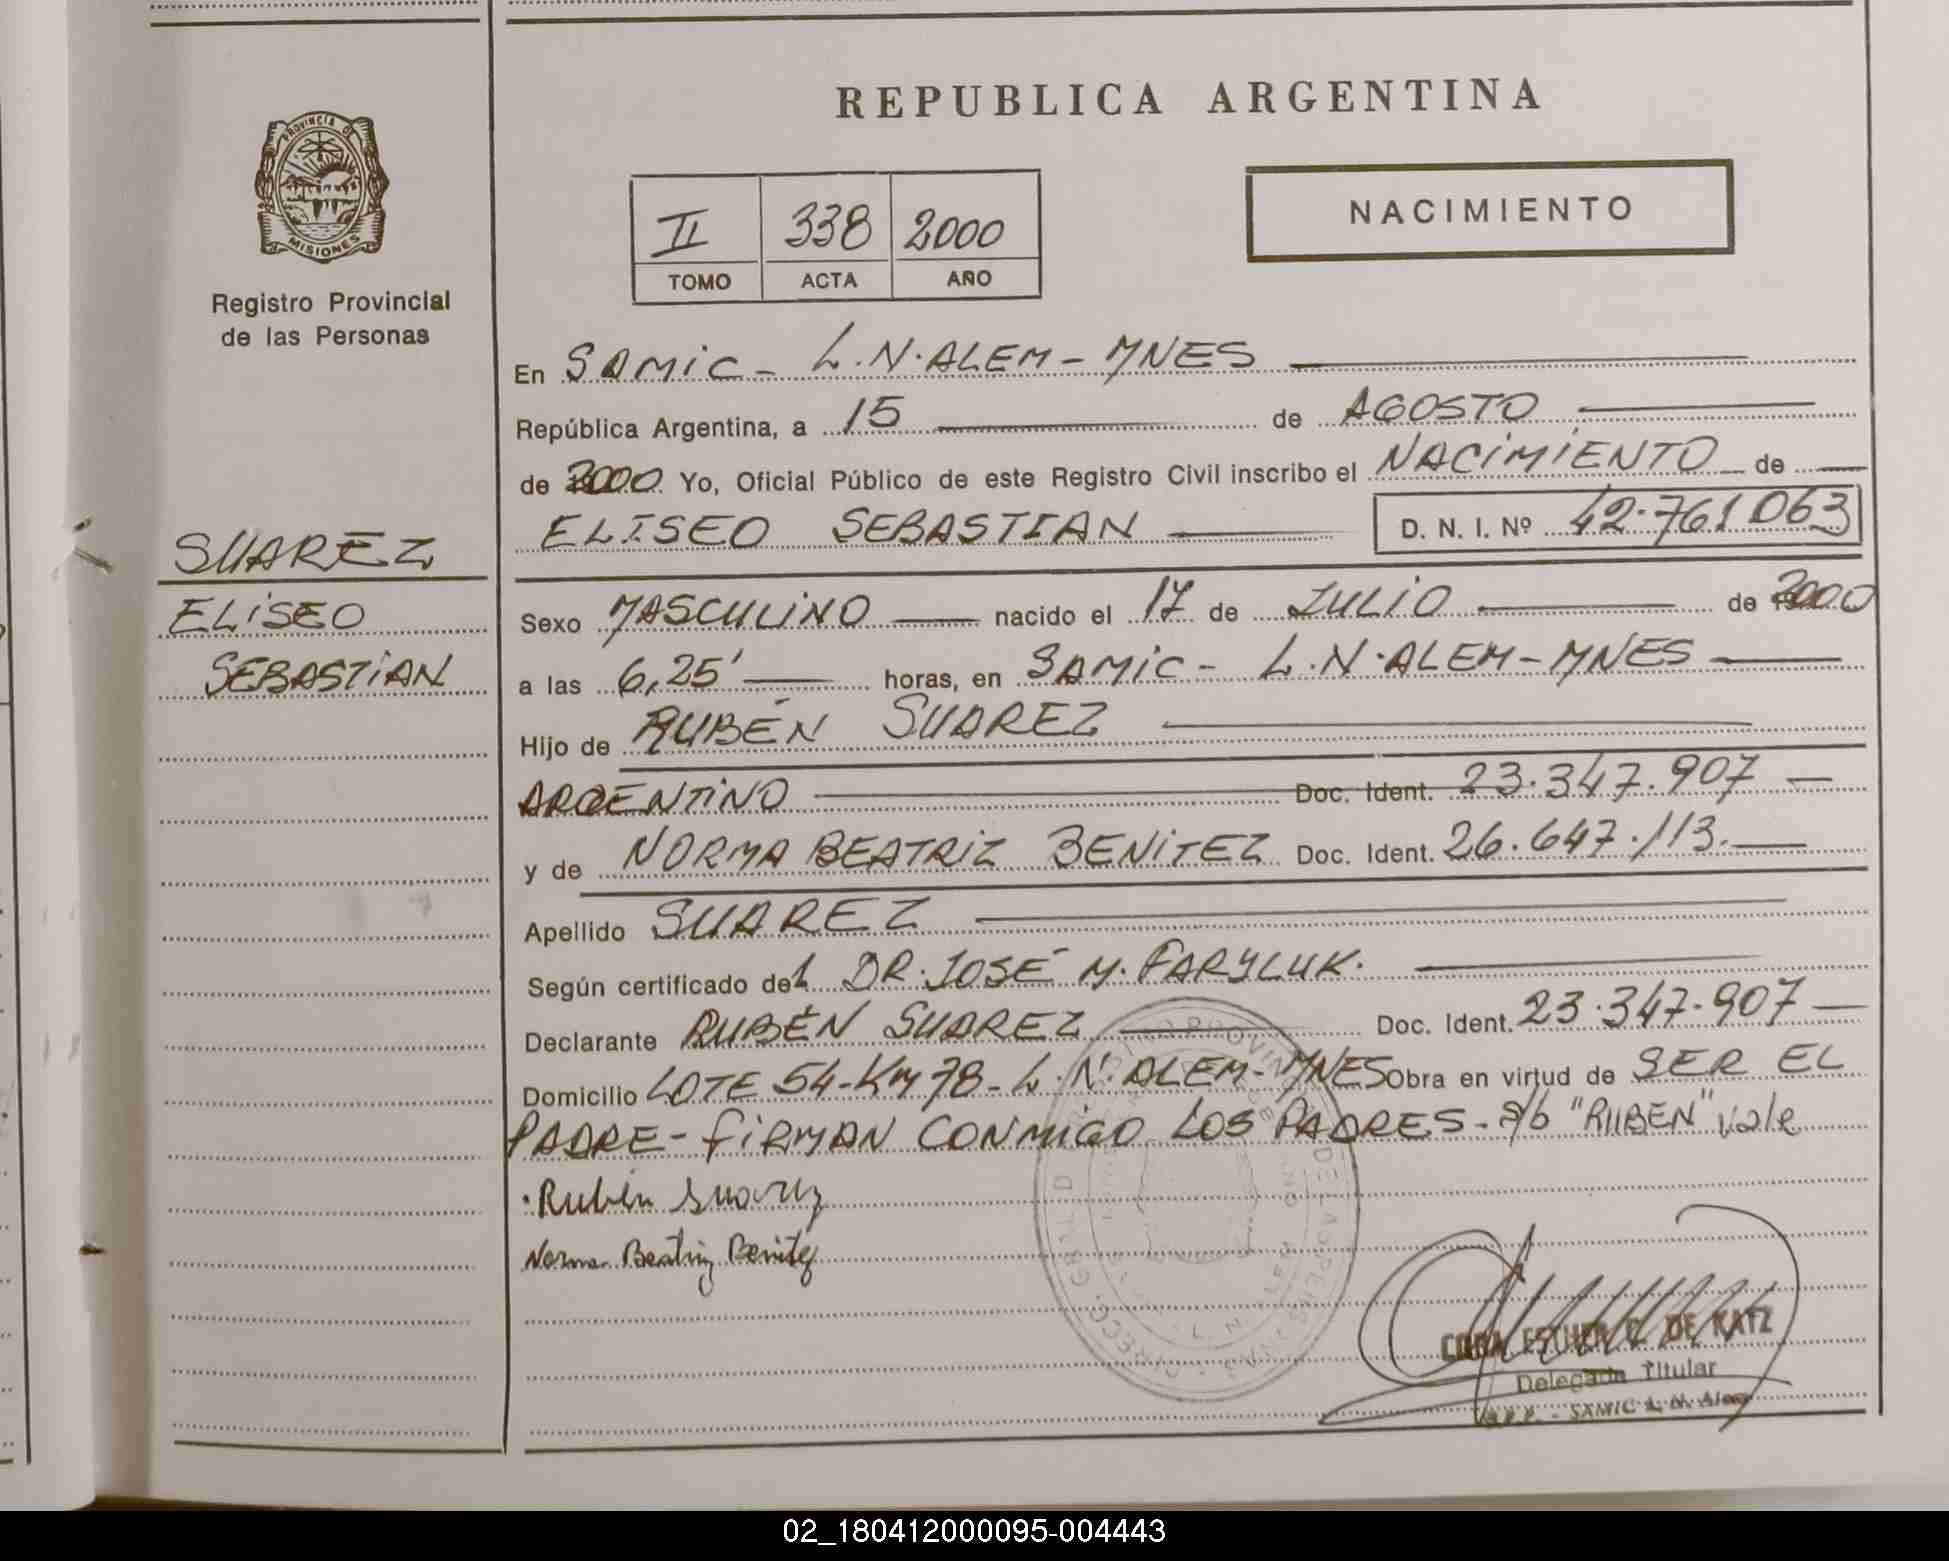 REPUBLICA ARGENTINA
PROVINCIA DE
MISIONES
Registro Provincial
de las Personas
II 338 2000
TOMO ACTA AÑO
NACIMIENTO
En SAMIC - L.N. ALEM - MNES
República Argentina, a 15 de AGOSTO
de 2000 Yo, Oficial Público de este Registro Civil inscribo el NACIMIENTO de
ELISEO SEBASTIAN D. N. I. Nº 42.761.063
SUAREZ
ELISEO
SEBASTIAN
Sexo MASCULINO nacido el 17 de JULIO de 2000
a las 6,25' horas, en SAMIC - L.N. ALEM - MNES
Hijo de RUBÉN SUAREZ
ARGENTINO Doc. Ident. 23.347.907
y de NORMA BEATRIZ BENITEZ Doc. Ident. 26.647.113.
Apellido SUAREZ
Según certificado del DR. JOSÉ M. FARYLUK.
Declarante RUBÉN SUAREZ Doc. Ident. 23.347.907
Domicilio LOTE 54 - KM 78 - L.N. ALEM - MNES Obra en virtud de SER EL
PADRE - FIRMAN CONMIGO LOS PADRES - s/b "RUBEN" vale
Rubén Suarez
Norma Beatriz Benitez
CORA ESTHER DE KATZ
Delegada Titular
SAMIC L. N. Alem
02_180412000095-004443